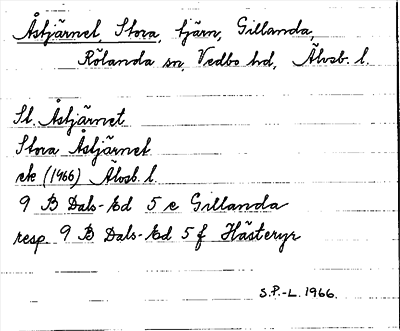 Åstjärnet, Stora, tjärn, Gillanda,
Rölanda sn, Vedbo hd, Älvsb. l.
St. Åstjärnet
Stora Åstjärnet
ek (1966) Älvsb. l.
9 B Dals-Ed 5 e Gillanda
resp. 9 B Dals-Ed 5 f Hästeryr
S.P.-L. 1966.